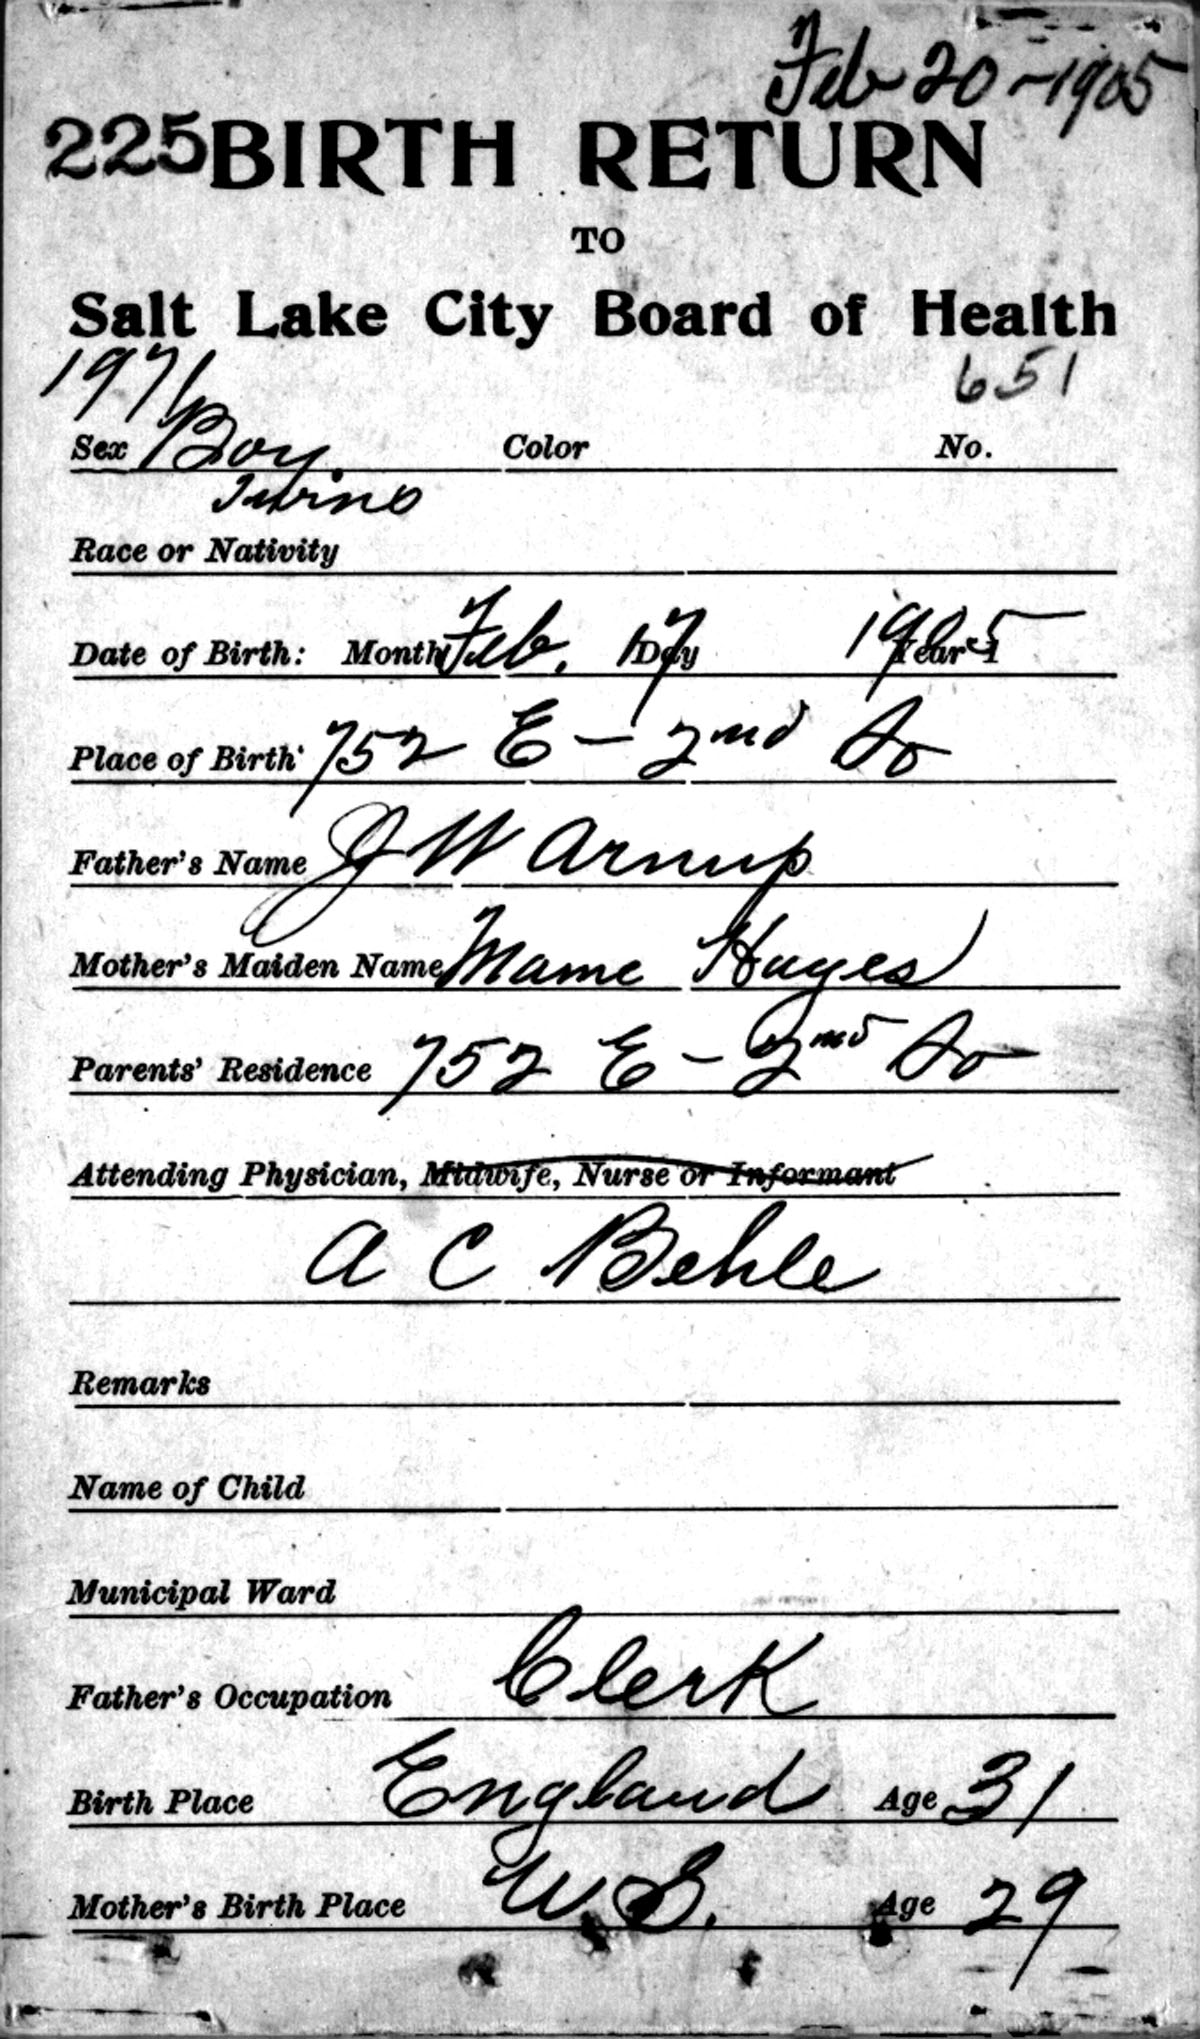 Feb 20-1905
225 BIRTH RETURN
TO
Salt Lake City Board of Health
1971 651
Sex Boy. Color No.
Twins
Race or Nativity
Date of Birth: Month Feb. Day 17 Year 1905
Place of Birth 752 E - 2nd So
Father's Name J W Arnup
Mother's Maiden Name Mame Hayes
Parents' Residence 752 E - 2nd So
Attending Physician, Midwife, Nurse or Informant
A C Behle
Remarks
Name of Child
Municipal Ward
Father's Occupation Clerk
Birth Place England Age 31
Mother's Birth Place U.S. Age 29